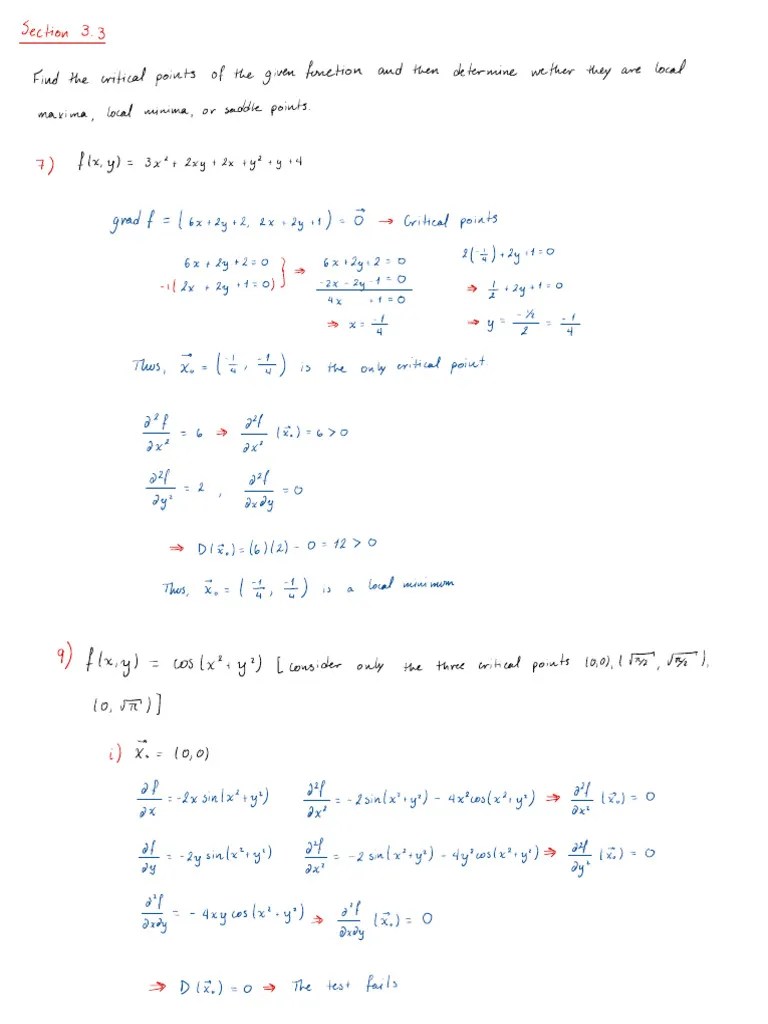 Section 3.3
Find the critical points of the given function and then determine wether they are local
maxima, local minima, or saddle points.
7) f(x,y) = 3x² + 2xy + 2x + y² + y + 4
grad f = (6x+2y+2, 2x+2y+1) = 0⃗ → Critical points
6x + 2y + 2 = 0 } ⇒ 6x + 2y + 2 = 0 2(-1/4) + 2y + 1 = 0
-1(2x + 2y + 1 = 0) -2x - 2y - 1 = 0 ⇒ 1/2 + 2y + 1 = 0
4x + 1 = 0
⇒ x = -1/4 ⇒ y = (-1/2)/2 = -1/4
Thus, x⃗₀ = (-1/4, -1/4) is the only critical point.
∂²f/∂x² = 6 ⇒ ∂²f/∂x² (x⃗₀) = 6 > 0
∂²f/∂y² = 2 , ∂²f/∂x∂y = 0
⇒ D(x⃗₀) = (6)(2) - 0 = 12 > 0
Thus, x⃗₀ = (-1/4, -1/4) is a local minimum
9) f(x,y) = cos(x² + y²) [consider only the three critical points (0,0), (√π/2, √π/2),
(0, √π)]
i) x⃗₀ = (0,0)
∂f/∂x = -2x sin(x² + y²) ∂²f/∂x² = -2sin(x² + y²) - 4x²cos(x² + y²) ⇒ ∂²f/∂x² (x⃗₀) = 0
∂f/∂y = -2y sin(x² + y²) ∂²f/∂x² = -2 sin(x² + y²) - 4y²cos(x² + y²) ⇒ ∂²f/∂y² (x⃗₀) = 0
∂²f/∂x∂y = -4xy cos(x² + y²) ⇒ ∂²f/∂x∂y (x⃗₀) = 0
⇒ D(x⃗₀) = 0 ⇒ The test fails